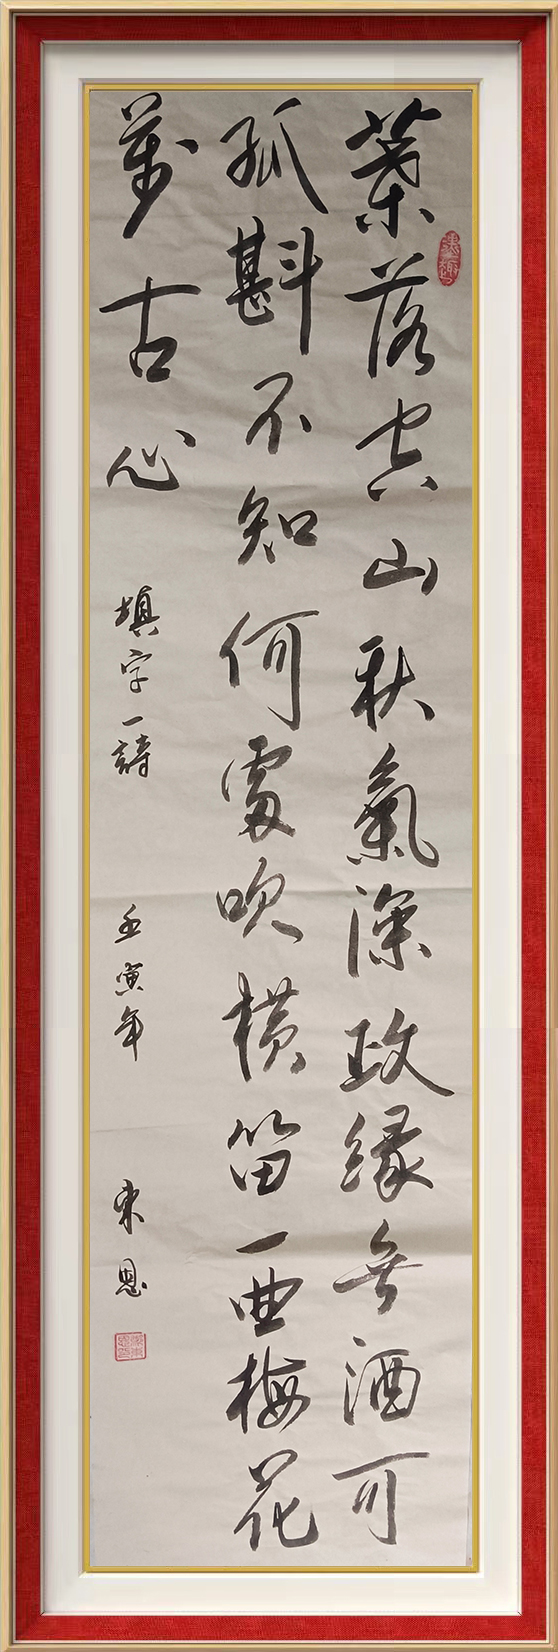 葉落空山秋氣深政緣無酒可
孤斟不知何處吹橫笛一曲梅花
萬古心
填字一詩
壬寅年
東恩